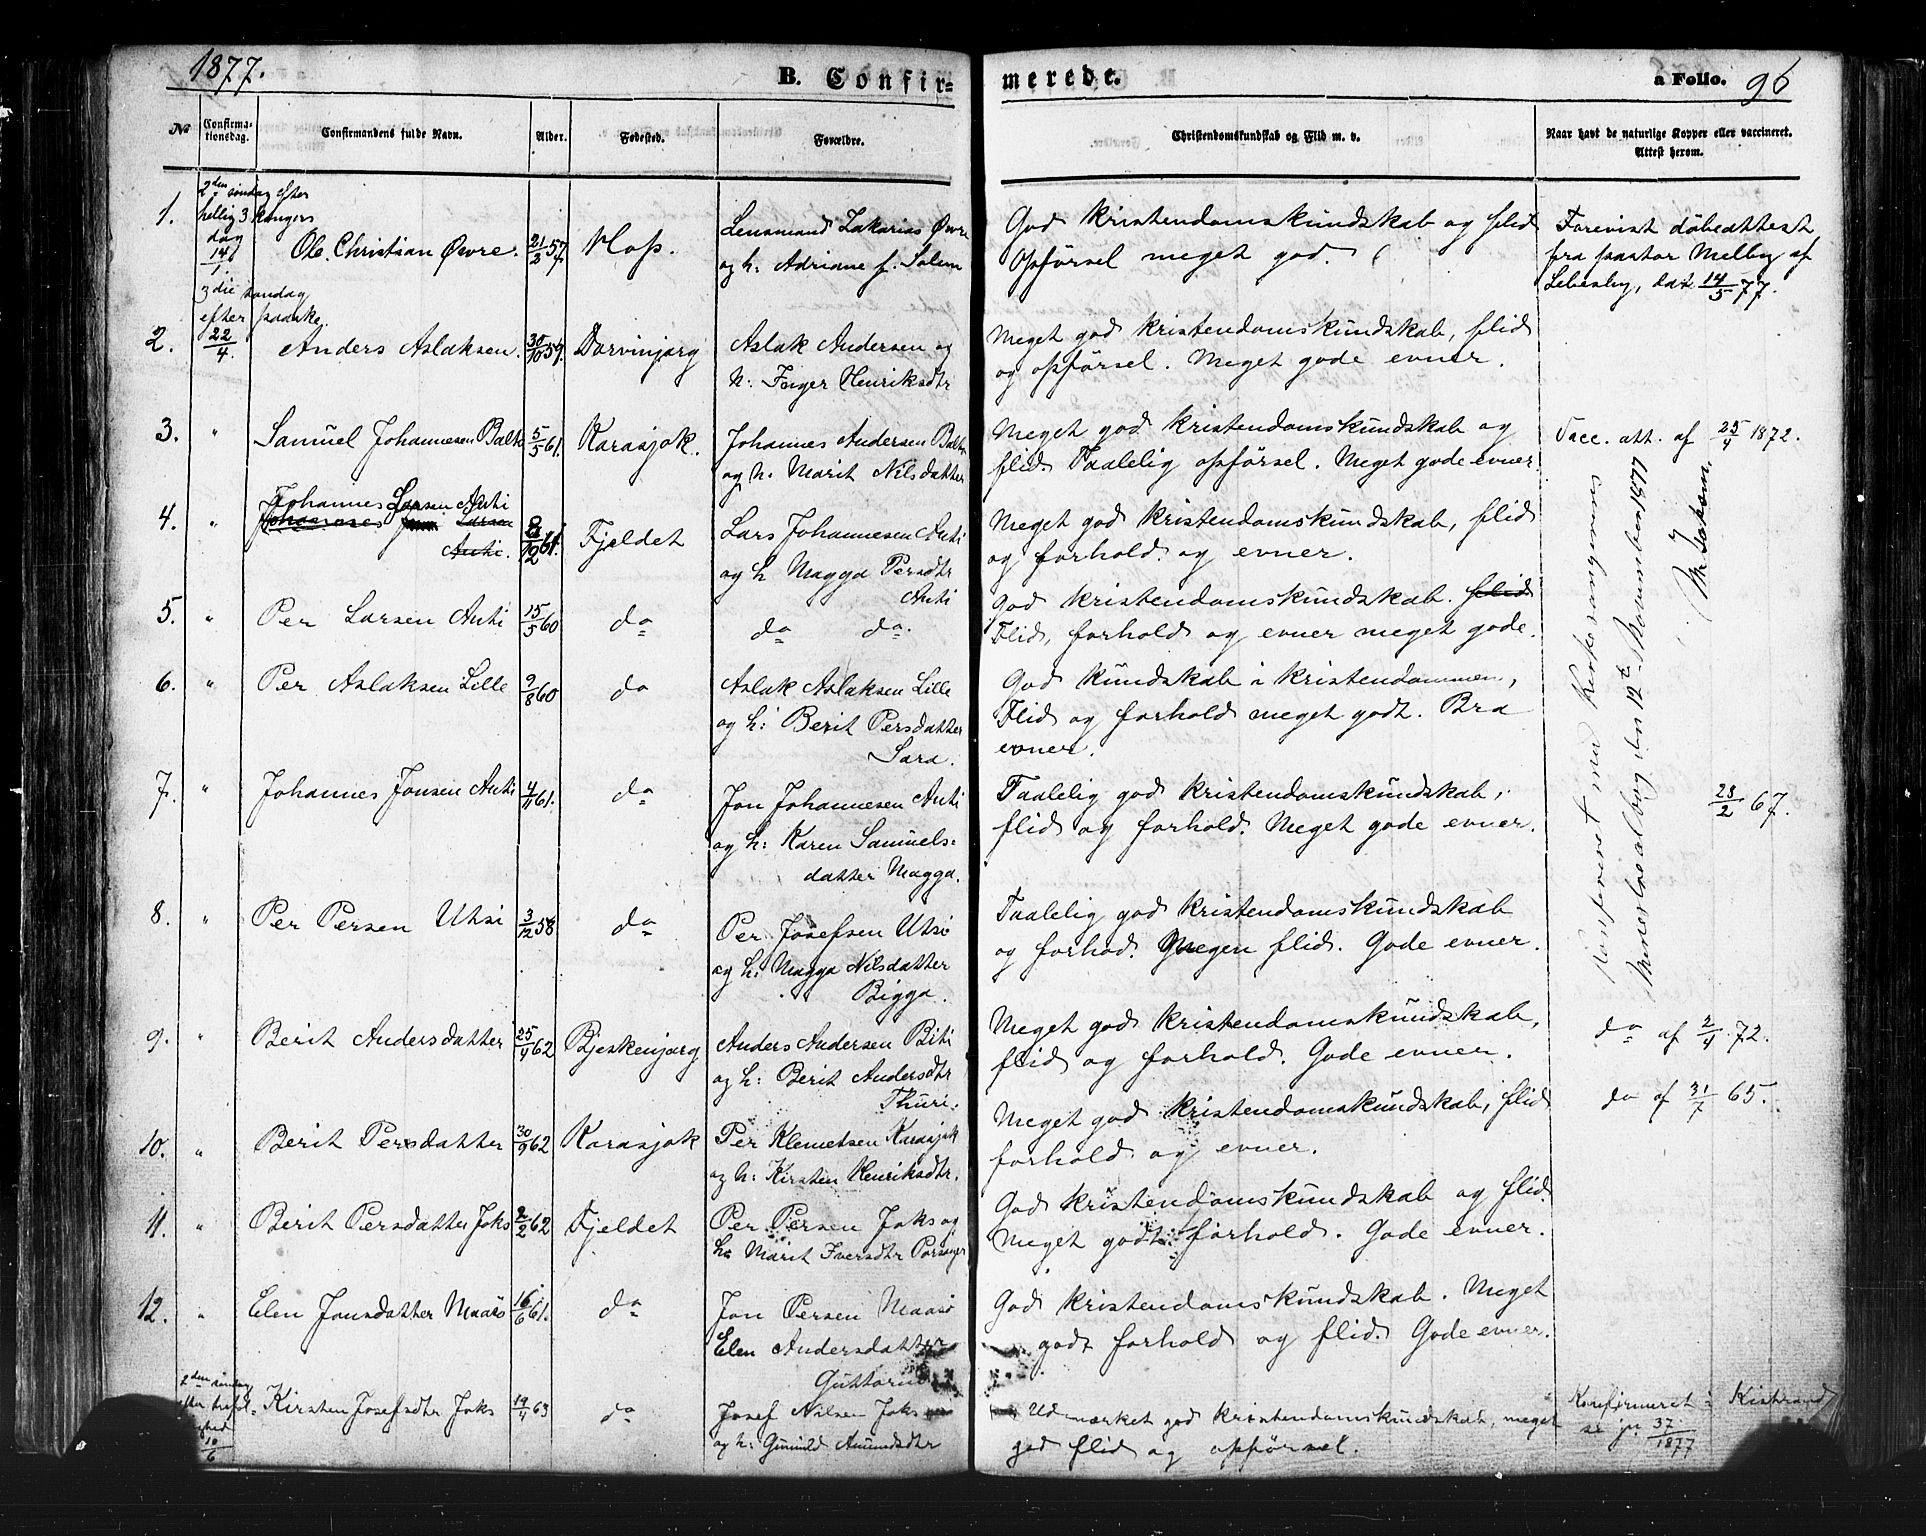 1877.
B. Confir-
merede.
a Folio. 96
No
Confirma-
tionsdag.
Confirmandens fulde Navn.
Alder.
Fødested.
Forældre.
Christendomskundskab og Flid m. v.
Naar havt de naturlige Kopper eller vaccineret.
Attest herom.
1.
2den søndag efter
hellig 3 kongers
dag
14/1.
Ole Christian Øvre.
21/2 57
Hops.
Lensmand Zakarias Øvre
og h: Adriane f. Salem
God kristendomskundskab og flid
Opførsel meget god.
Forevist døbeattest
fra pastor Melby af
Lebesby, dat. 14/5 77.
2.
3die søndag
efter paaske
22/4.
Anders Aslaksen.
30/10 59.
Dorvinjarg
Aslak Andersen og
h: Inger Henriksdtr
Meget god kristendomskundskab, flid
og opførsel. Meget gode evner.
3. "
Samuel Johannesen Balto
5/5 61.
Karasjok.
Johannes Andersen Balto
og h. Marit Nilsdatter
Meget god kristendomskundskab og
flid. Taalelig opførsel. Meget gode evner
Vacc. att. af 25/4 1872.
4. "
Johannes Larsen Anti
Larsen
Anti.
8/12 61.
Fjeldet
Lars Johannesen Anti
og h Magga Persdtr
Anti
Meget god kristendomskundskab, flid
og forhold og evner.
5. "
Per Larsen Anti
15/5 60
do
do do.
God kristendomskundskab. flid
Flid, forhold og evner meget gode.
6. "
Per Aslaksen Lille
9/8 60
do
Aslak Aslaksen Lille
og h: Berit Persdatter
Sara.
God kundskab i kristendommen,
Flid og forhold meget godt. Bra
evner.
7. "
Johannes Jonsen Anti
4/11 61.
do
Jon Johannesen Anti
og h: Karen Samuels-
datter Magga.
Taalelig god kristendomskundskab,
flid og forhold. Meget gode evner.
23/2 67.
8. "
Per Persen Utsi
3/12 58
do
Per Josefsen Utsi
og h: Magga Nilsdatter
Bigga.
Taalelig god kristendomskundskab
og forhod. Megen flid. Gode evner.
Konfereret med Kirkesangerens
Ministerialbog den 12te November 1877
9. "
Berit Andersdatter
25/4 62
Bjeskenjarg
Anders Andersen Biti
og h: Berit Andersdtr
Thuri.
Meget god kristendomskundskab,
flid og forhold. Gode evner.
do af 2/4 72.
10. "
Berit Persdatter
30/9 62
Karasjok
Per Klemetsen Karasjok
og h: Kirsten Henriksdtr.
Meget god kristendomskundskab, flid
forhold og evner.
do af 31/7 65.
11. "
Berit Persdatter Joks
2/2 62
Fjeldet
Per Persen Joks og
h: Marit Iversdtr Porsanger
God kristendomskundskab og flid.
Meget godt forhold. Gode evner.
12. "
Elen Jonsdatter Maasø
16/6 61.
do
Jon Persen Maasø
Elen Andersdatter
Guttorm
God kristendomskundskab. Meget
godt forhold og flid. Gode evner.
2den søndag
10/6
Kirsten Josefsdtr Joks
19/4 63
do
Josef Nilsen Joks
og h: Gunild Amundsdtr
Udmærket god kristendomskundskab, meget
god flid og opførsel.
Konfirmeret i Kistrand
se jn 37/1877